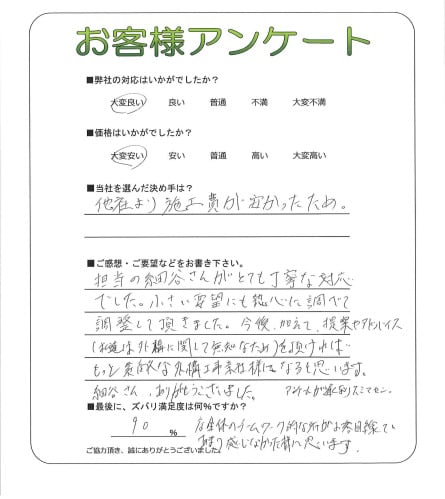 お客様アンケート
■弊社の対応はいかがでしたか?
大変良い 良い 普通 不満 大変不満
■価格はいかがでしたか?
大変安い 安い 普通 高い 大変高い
■当社を選んだ決め手は?
他社より施工費が安かったため。
■ご感想・ご要望などをお書き下さい。
担当の細谷さんがとても丁寧な対応
でした。小さい要望にも熱心に調べて
調整して頂きました。今後、加えて、提案やアドバイス
(お客は外構に関して無知なため)を頂ければ
もっと素敵な外構工事会社様になると思います。
細谷さん、ありがとうございました。
アンケートが遅れスミマセン。
■最後に、ズバリ満足度は何%ですか?
90 %
チームワーク的な所がお客目線で
感じなかった様に思います。
ご協力頂き、誠にありがとうございました。